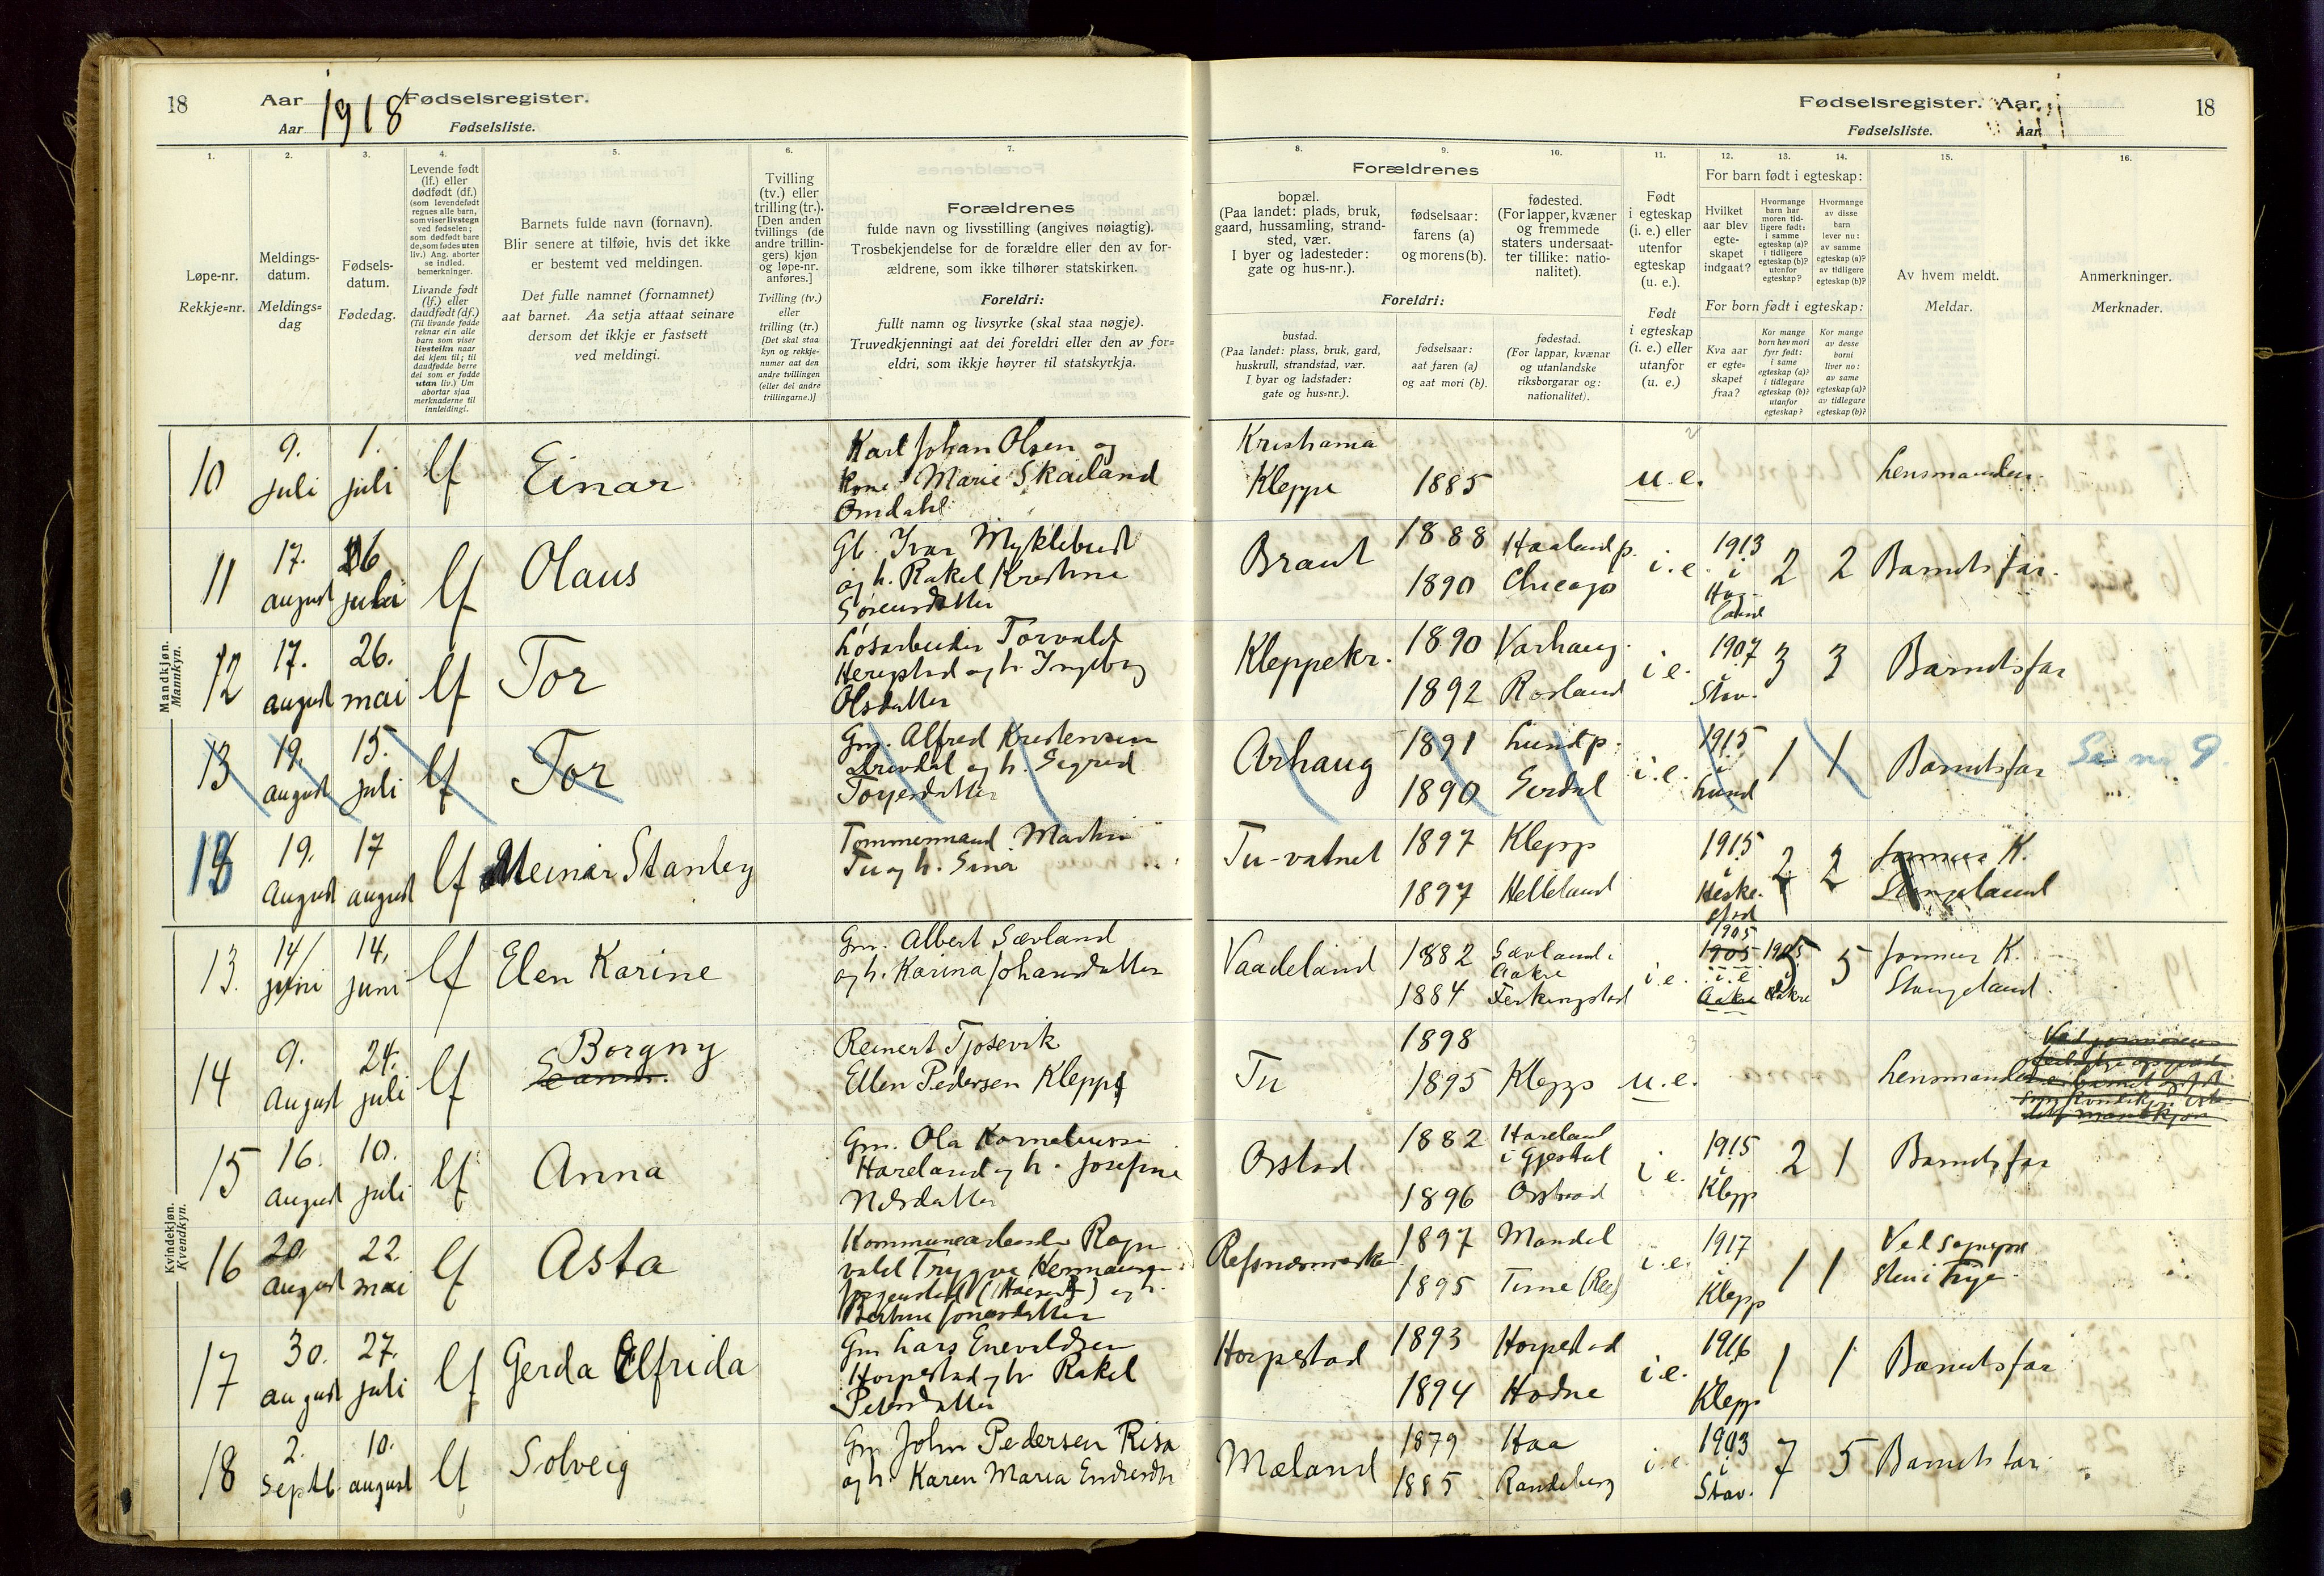 18 Aar 1918 Fødselsregister.
Aar Fødselsliste.
Fødselsregister. Aar 18
Fødselsliste. Aar
1. 2. 3. 4. 5. 6. 7. 8. 9. 10. 11. 12. 13. 14. 15. 16.
Løpe-nr.
Rekkje=nr.
Meldings-
datum.
Meldings=
dag
Fødsels-
datum.
Fødedag.
Levende født
(lf.) eller
dødfødt (df.)
(som levendefødt
regnes alle barn,
som viser livstegn
ved fødselen;
som dødfødt bare
de, som fødes uten
liv.) Ang. aborter
se indled.
bemerkninger.
Livande født
(lf.) eller
daudfødt (df.)
(Til livande fødde
reknar ein alle
barn som viser
livsteikn naar
dei kjem til; til
daudfødde berre
dei som er fødde
utan liv.) Um
abortar sjaa
merknaderne til
innleidingi.
Barnets fulde navn (fornavn).
Blir senere at tilføie, hvis det ikke
er bestemt ved meldingen.
Det fulle namnet (fornamnet)
aat barnet. Aa setja attaat seinare
dersom det ikkje er fastsett
ved meldingi.
Tvilling
(tv.) eller
trilling (tr.).
[Den anden
tvillings (de
andre trillin-
gers) kjøn
og løpe-nr.
anføres.]
Tvilling (tv.)
eller
trilling (tr.)
[Det skal staa
kyn og rekkje-
numer aat den
andre tvillingen
(eller dei andre
trillingarne.)]
Forældrenes
fulde navn og livsstilling (angives nøiagtig).
Trosbekjendelse for de forældre eller den av for-
ældrene, som ikke tilhører statskirken.
Foreldri:
fullt namn og livsyrke (skal staa nøgje).
Truvedkjenningi aat dei foreldri eller den av for=
eldri, som ikkje høyrer til statskyrkja.
Forældrenes
bopæl.
(Paa landet: plads, bruk,
gaard, hussamling, strand-
sted, vær.
I byer og ladesteder:
gate og hus-nr.).
fødselsaar:
farens (a)
og morens (b).
fødested.
(For lapper, kvæner
og fremmede
staters undersaat-
ter tillike: natio-
nalitet).
Foreldri:
bustad.
(Paa landet: plass, bruk, gard,
huskrull, strandstad, vær.
I byar og ladstader:
gate og hus=nr.).
fødselsaar:
aat faren (a)
og aat mori (b).
fødestad.
(For lappar, kvænar
og utanlandske
riksborgarar og:
nationalitet).
Født
i egteskap
(i. e.) eller
utenfor
egteskap
(u. e.).
Født
i egteskap
(i. e.) eller
utanfor
(u. e.)
For barn født i egteskap:
Hvilket
aar blev
egte-
skapet
indgaat?
Hvormange
barn har
moren tid-
ligere født:
i samme
egteskap (a)?
i tidligere
egteskap (b)?
utenfor
egteskap?
Hvormange
av disse
barn
lever nu:
av samme
egteskap (a)?
av tidligere
egteskap (b)?
For born født i egteskap:
Kva aar
er egte=
skapet
fraa?
Kor mange
born hev mori
fyrr født:
i same
egteskap (a)?
i tidlegare
egteskap (b)?
utanfor
egteskap?
Kor mange
av desse
borni
liver no:
av same
egteskap (a)?
av tidlegare
egteskap (b)?
Av hvem meldt.
Meldar.
Anmerkninger.
Merknader.
Mandkjøn.
Mannkyn.
10 9. juli 1. juli lf Einar
Karl Johan Olsen og
kone Marie Skailand
Omdahl
Kristiania
Kleppe 1885 u.e. Lensmanden
11 17. august 26 juli lf Olaus
Gb. Ivar Myklebust
og h. Rakel Kristine
Sørensdatter
Braut 1888 Haaland p. i.e. 1913 i Haaland 2 2 Barnets far.
1890 Chicago
12 17. august 26. mai lf Tor
Løsarbeider Torvald
Herigstad og h. Ingeborg
Olsdatter
Kleppekr. 1890 Varhaug. i.e. 1907 i Stav. 3 3 Barnets far
1892 Rosland
13 19. august 15. juli lf Tor
Gm. Alfred Kristensen
Drivdal og h. Sigrid
Torjesdatter
Arhaug 1891 Lund p. i.e. 1915 i Lund 1 1 Barnets far Se nr 9.
1890 Gerdal
13 19. August 17 august lf Meinar Stanley
Tømmermand Martin
Tu og h. Sina
Tu-vatnet 1897 Klepp 1915 i Heskestad 2 2 Jormor K.
1897 Helleland Stangeland
Kvindekjøn.
Kvendkyn.
13. 14/ juni 14. juni lf Elen Karine
Gm. Albert Sævland
og h. Karina Johansdatter
Vaadeland 1882 Sævland i Aakre i.e. 1905 1905 i Aakre 5 5 Jormor K.
1884 Ferkingstad Stangeland.
14 9. August 24. juli lf Borgny
Reinert Tjosevik
Ellen Pedersen Klepp
Tu 1898
1895 Klepp u.e. Lensmanden
15 16. August 10. juli lf Anna
Gm. Ola Korneliussen
Hareland og h. Josefine
Nilsdatter
Orstad 1882 Hareland i Gjestal i.e. 1915 i Klepp 2 1 Barnets far
1896 Orstad
16 20. august 22. mai lf Asta
Kommunearbeider Ragn
vald Trygve Hermansen
Jørgenstad og h.
Bertine Jonasdatter
Refsnesmarka 1897 Mandal i.e. 1917 i Klepp 1 1 Ved sogneprest
1895 Time (Ree)
17 30. august 27. juli lf Gerda Elfrida
Gm Lars Enevaldsen
Horpestad og h. Rakel
Petersdatter
Horpestad 1893 Horpestad i.e. 1916 i Klepp 1 1 Barnets far
1894 Hodne
18 2. Septb. 10. august lf Solveig
Gm John Pedersen Risa
og h. Karen Maria Endresdtr
Mæland 1879 Haa i.e. 1903 i Stav. 7 5 Barnets far
1885 Randeberg